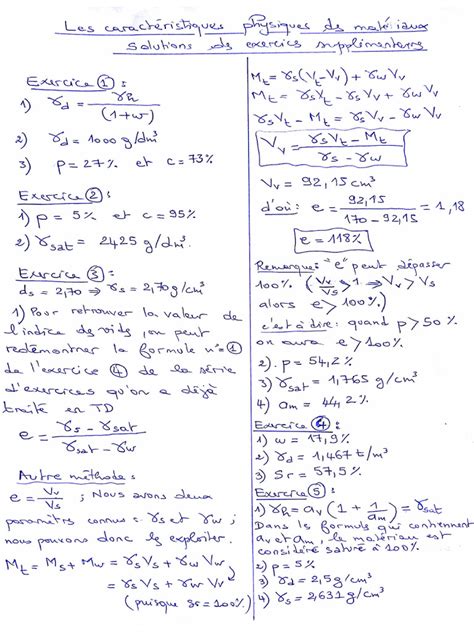 Les caractéristiques physiques des matériaux
Solutions des exercices supplémentaires
Exercice ① :
1) γd = γh / (1+w)
2) γd = 1000 g/dm³
3) p = 27% et c = 73%
Exercice ② :
1) p = 5% et c = 95%
2) γsat = 2425 g/dm³.
Exercice ③ :
ds = 2,70 ⇒ γs = 2,70 g/cm³
1) Pour retrouver la valeur de
l'indice des vids, on peut
redémontrer la formule n°= ①
de l'exercice ④ de la série
d'exercices qu'on a déjà
traité en TD
e = (γs - γsat) / (γsat - γw)
Autre méthode :
e = Vv/Vs ; Nous avons deux
paramètrs connus = γs et γw ;
nous pouvons donc les exploiter.
Mt = Ms + Mw = γs Vs + γw Vw
= γs Vs + γw Vv
(puisque Sr = 100%)
Mt = γs (Vt - Vv) + γw Vv
Mt = γs Vt - γs Vv + γw Vv
γs Vt - Mt = γs Vv - γw Vv
Vv = (γs Vt - Mt) / (γs - γw)
Vv = 92,15 cm³
d'où : e = 92,15 / (170 - 92,15) = 1,18
e = 118%
Remarque : "e" peut dépasser
100% (Vv/Vs > 1 ⇒ Vv > Vs
alors e > 100%)
c'est à dire : quand p > 50%
on aura e > 100%.
2). p = 54,2%
3) γsat = 1,765 g/cm³
4) am = 44,2%
Exercice ④ :
1) w = 17,9%
2) γd = 1,467 t/m³
3) Sr = 57,5%
Exercice ⑤ :
1) γh = av (1 + 1/am) = γsat
Dans les formuls qui contiennent
av et am, le matériau est
considéré saturé à 100%.
2) p = 5%
3) γd = 2,5 g/cm³
4) γs = 2,631 g/cm³